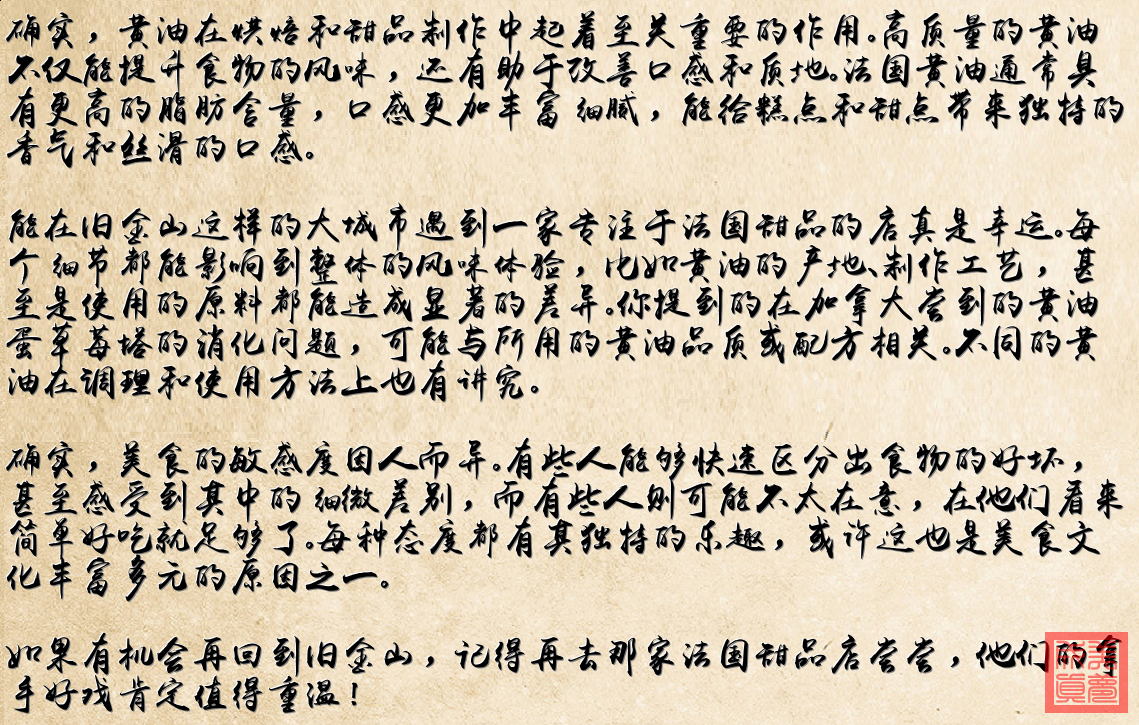 确实，黄油在烘焙和甜品制作中起着至关重要的作用。高质量的黄油
不仅能提升食物的风味，还有助于改善口感和质地。法国黄油通常具
有更高的脂肪含量，口感更加丰富细腻，能给糕点和甜点带来独特的
香气和丝滑的口感。
能在旧金山这样的大城市遇到一家专注于法国甜品的店真是幸运。每
个细节都能影响到整体的风味体验，比如黄油的产地、制作工艺，甚
至是使用的原料都能造成显著的差异。你提到的在加拿大尝到的黄油
蛋草莓塔的消化问题，可能与所用的黄油品质或配方相关。不同的黄
油在调理和使用方法上也有讲究。
确实，美食的敏感度因人而异。有些人能够快速区分出食物的好坏，
甚至感受到其中的细微差别，而有些人则可能不太在意，在他们看来
简单好吃就足够了。每种态度都有其独特的乐趣，或许这也是美食文
化丰富多元的原因之一。
如果有机会再回到旧金山，记得再去那家法国甜品店尝尝，他们的拿
手好戏肯定值得重温！